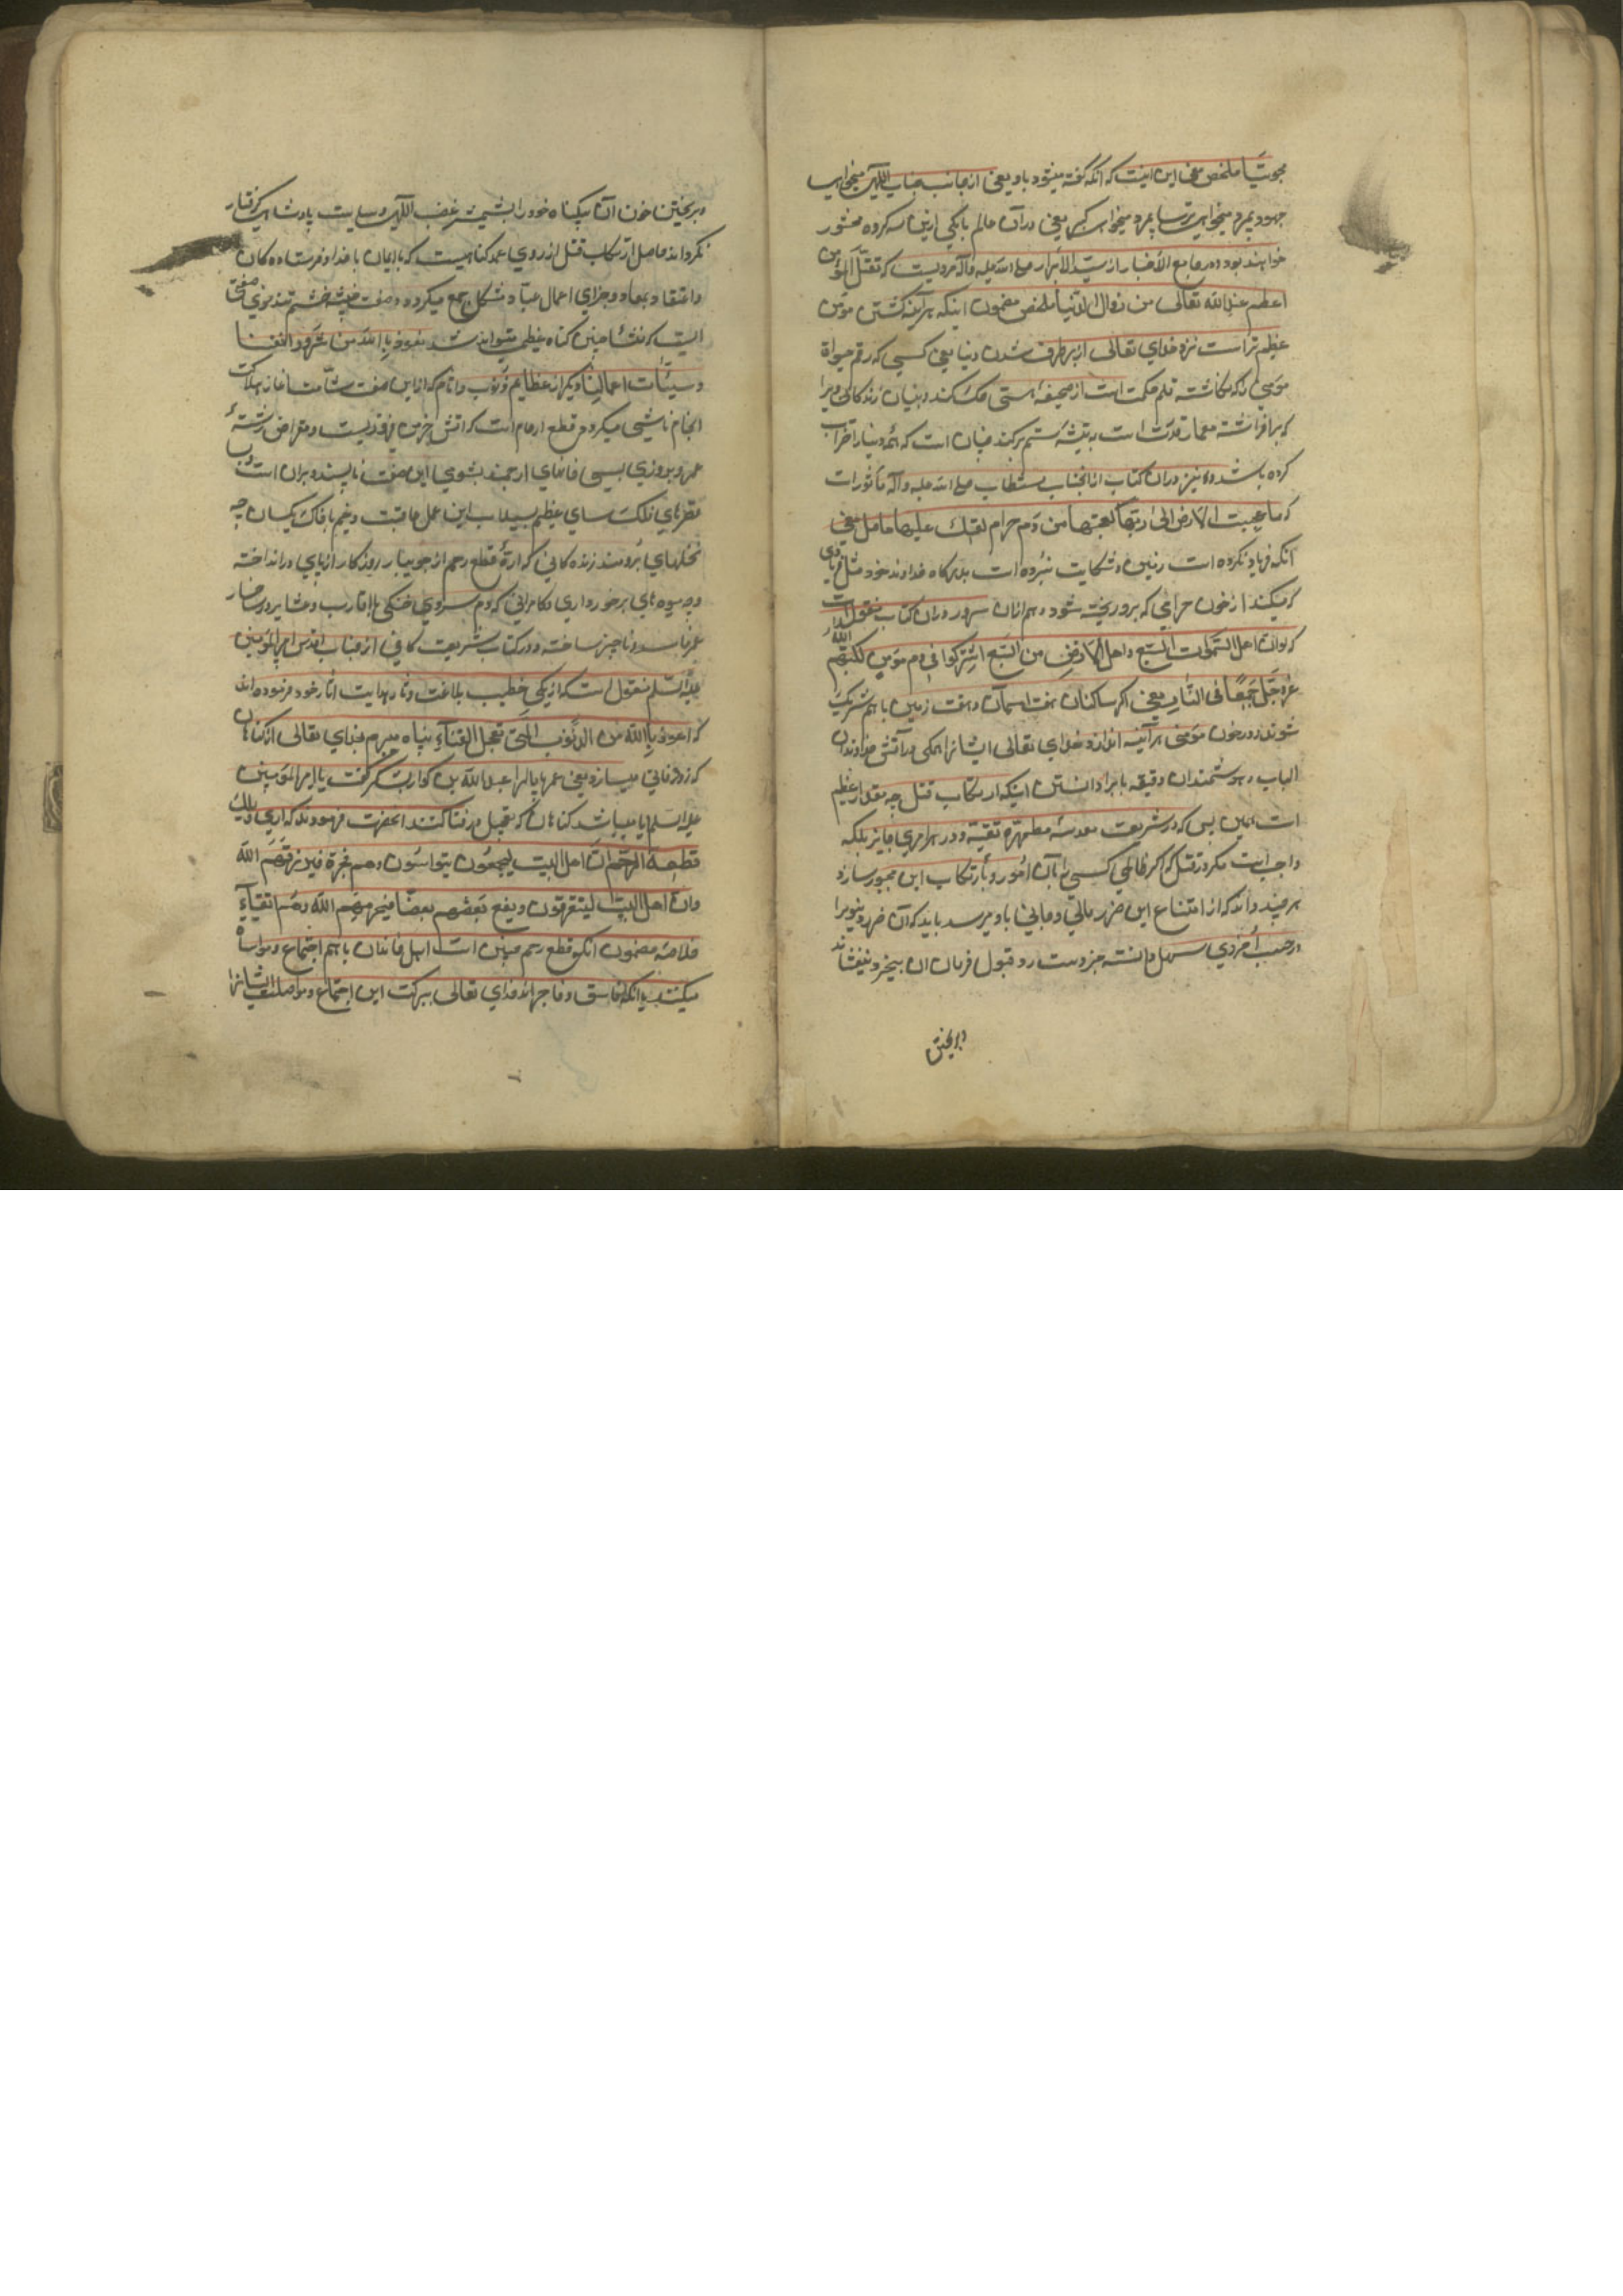 مجوسیًا ملخص معنی این اینست که انکه گفته میشود باو یعنی از جانب جناب الٓهی میخواهی
جهود بمیر و میخواهی ترسا بمیر و میخواهی کبر یعنی در آن عالم با یکی ازین سه کروه محشور
خواهند بود و در جامع الأخبار از سیّد الأبرار صلی الله علیه وآله مرویست که لقتل المؤمن
اعظم عند الله تعالی من زوال الدّنیا ملخص مضمون اینکه هر آینه کشتن مؤمن
عظیم تر است نزد خدای تعالی از برطرف شدن دنیا یعنی کسی که رقم حیواة
مؤمنی را که نکاشته قلم حکمت است از صحیفه هستی حک کند و بنیان زندکانی ویرا
که برافراشته معمار قدرت است به تیشه ستم برکند چنان است که همه دنیا را خراب
کرده باشد و نیز در ان کتاب از انجناب مستطاب صلی الله علیه وآله مأثور است
که ما عجبت الارض الی ربّها کعجّتها من دم حرام یسفک علیها حاصل معنی
انکه فریاد نکرده است زمین و شکایت نبرده است بدرکاه خداوند خود مثل فریادی
که میکند از خون حرامی که برو ریخته شود و هم ازان سرور در ان کتاب منقول است
که لو ان اهل السّموات السّبع و اهل الارضین السّبع اشترکوا فی دم مؤمن لکبّهم الله
عزّ وجلّ جمیعًا فی النّار یعنی اکر ساکنان هفت اسمان و هفت زمین با هم شریک
شوند در خون مؤمنی هر آینه اندازد خدای تعالی ایشانرا همکی در آتش خداوندان
الباب و هوشمندان دقیقه یاب را دانستن اینکه ارتکاب قتل چه مقدار عظیم
است همین بس که در شریعت مقدسه مطهره تقیّة در هر امری جایز بلکه
واجبست مکر در قتل که اکر ظالمی کسی را بآن امر و بارتکاب این مجبور سازد
هر چند داند که از امتناع این ضرر مالی و جانی باو میرسد باید که آن ضرر دنیویرا
در جنب اخروی سهل دانسته جز دست رد قبول فرمان ان بیخرد نیفشاند
و بریختن
و بریختن خون آن بیکناه خود را بشمشیر غضب الٓهی و سیاست پادشاهی کرفتار
نکرداند حاصل ارتکاب قتل از روی عمد کناهیست که با ایمان با خدا و فرستاده کان
و اعتقاد بمعاد و جزای اعمال عباد مشکل جمع میکردد و صفت خبیثه خشم تند خوی صفتی
است که منشأ چنین کناه عظیمی میتواند شد نعوذ بالله من شرور انفسنا
و سیّئات اعمالنا و دیکر از عظایم ذنوب و اثام که از این صفت شآمت اغاز هلاکت
انجام ناشی میکردد قطع ارحام است که اتش خرمن فروزیست و مقراض رشتهٔ
عمر و بروزی بسی خانهای ارجمند بشومی این صفت ناپسند ویران است
قصرهای فلک سای عظیم بسیلاب این عمل عاقبت وخیم با خاک یکسان چه
نخلهای برومند زنده کانی که ارّهٔ قطع رحم از جویبار روزکار از پای در انداخته
و چه میوه های برخورداری و کامرانی که دم سردی خشکی با اقارب و عشایر در شاخسار
عمر فاسد و ناچیز ساخته و در کتاب شریعت کافی از جناب اقدس امیر المؤمنین
علیه السّلم منقول است که در یکی خطیب بلاغت و ثار هدایت اثار خود فرموده اند
که اعوذ بالله من الذّنوب الّتی تعجّل الفنآء پناه میبرم بخدای تعالی از کناهان
که زود فانی میسازد یعنی عمرها پا لهرا عبد الله بن کوا برخاست کفت یا امیر المؤمنین
علیه السّلم ایا میباشد کناهان که تعجیل در فنا کنند انحضرت فرمودند که اری ویلک
قطعیة الرّحم انّ اهل البیت لیجمعون یتواسون وهم فجرة فیرزقهم الله
وان اهل البیت لیتفرقون ویقطع بعضهم بعضًا فیحرمهم الله وهم اتقیآء
خلاصه مضمون انکه قطع رحم چنین است اهل خاندان با هم اجتماع و مواساة
میکنند با انکه فاسق و فاجرند خدای تعالی ببرکت این اجتماع و مواصلت ایشانرا